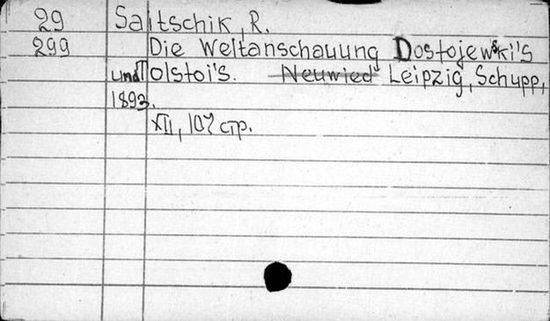 29 Saitschik, R.
299 Die Weltanschauung Dostojewski's
und Tolstoi's. Neuwied Leipzig, Schupp,
1893.
XII, 107 стр.